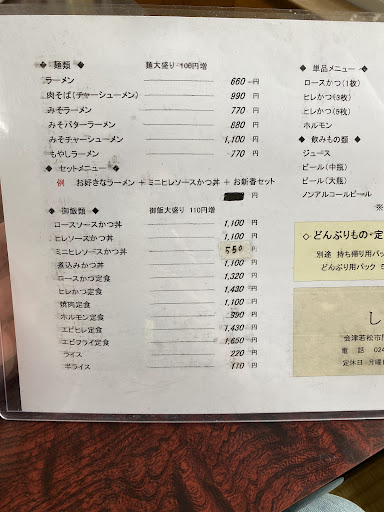 ◆ 麺類 ◆ 麺大盛り 100円増
ラーメン 660 円
肉そば(チャーシューメン) 990 円
みそラーメン 770 円
みそバターラーメン 880 円
みそチャーシューメン 1,100 円
もやしラーメン 770 円
◆ セットメニュー ◆
例 お好きなラーメン + ミニヒレソースかつ丼 + お新香セット
円
◆ 御飯類 ◆ 御飯大盛り 110円増
ロースソースかつ丼 1,100 円
ヒレソースかつ丼 1,100 円
ミニヒレソースかつ丼 550 円
煮込みかつ丼 1,100 円
ロースかつ定食 1,320 円
ヒレかつ定食 1,430 円
焼肉定食 1,100 円
ホルモン定食 990 円
エビヒレ定食 1,430 円
エビフライ定食 1,650 円
ライス 220 円
半ライス 110 円
◆ 単品メニュー ◆
ロースかつ(1枚)
ヒレかつ(3枚)
ヒレかつ(5枚)
ホルモン
◆ 飲みもの類 ◆
ジュース
ビール(中瓶)
ビール(大瓶)
ノンアルコールビール
※
◇ どんぶりもの・定
別途 持ち帰り用パッ
どんぶり用パック 5
し
会津若松市
電 話 024
定休日 月曜